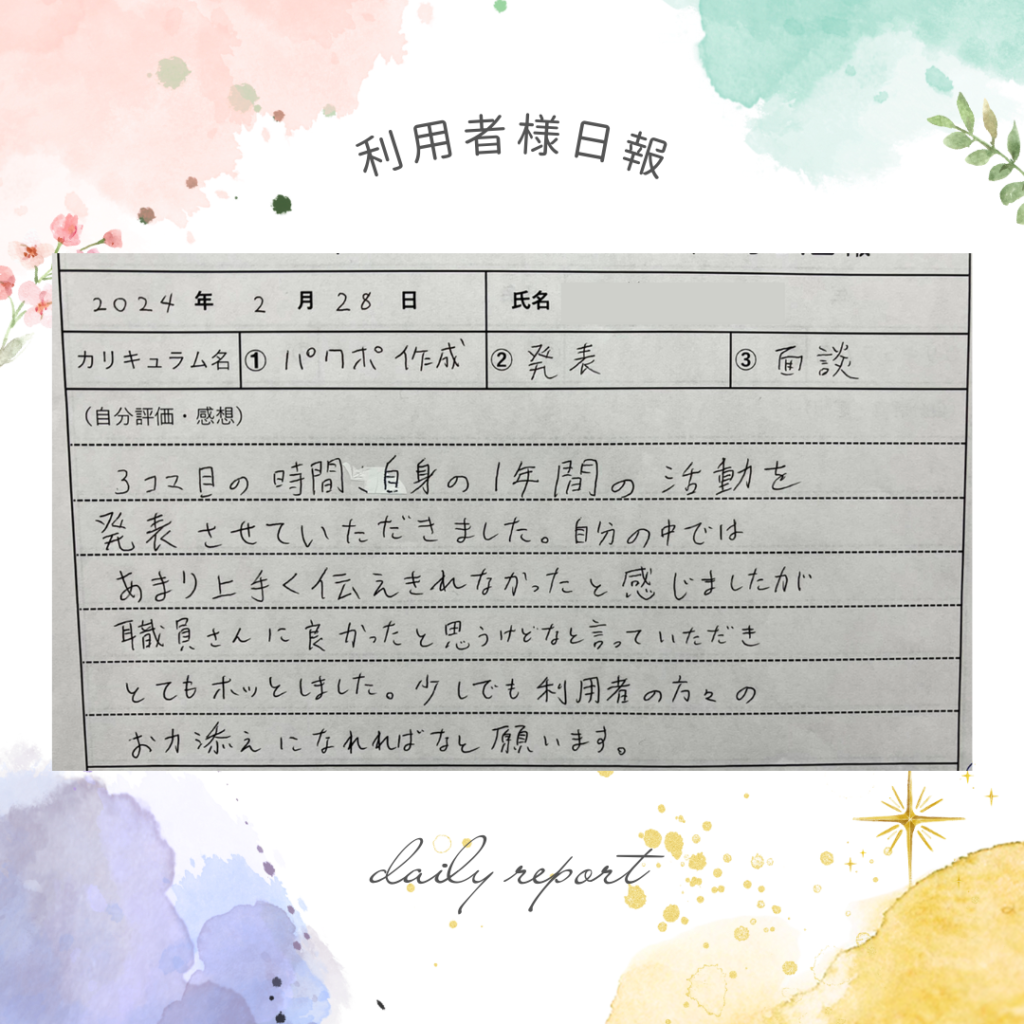 利用者様日報
2024 年 2 月 28 日 氏名
カリキュラム名 ① パワポ作成 ② 発表 ③ 面談
(自分評価・感想)
3コマ目の時間、自身の1年間の活動を
発表させていただきました。自分の中では
あまり上手く伝えきれなかったと感じましたが
職員さんに良かったと思うけどなと言っていただき
とてもホッとしました。少しでも利用者の方々の
お力添えになれればなと願います。
daily report